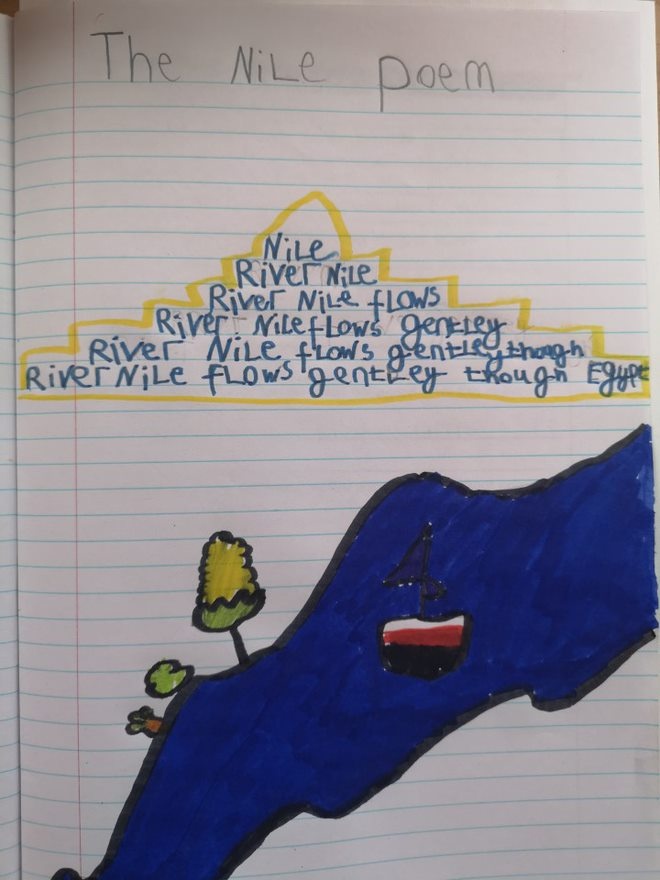 The Nile poem
Nile
River Nile
River Nile flows
River Nile flows gentley
River Nile flows gentley though
River Nile flows gentley though Egypt